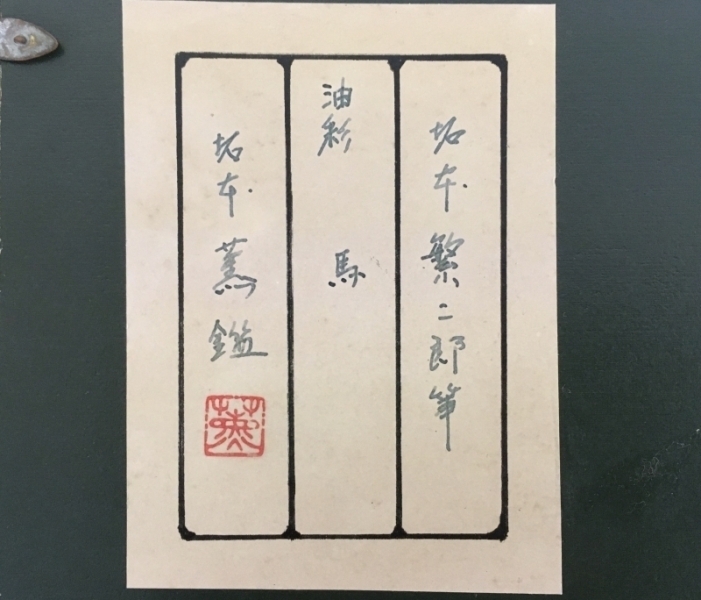 坂本繁二郎筆
油彩 馬
坂本薫鑑
薫